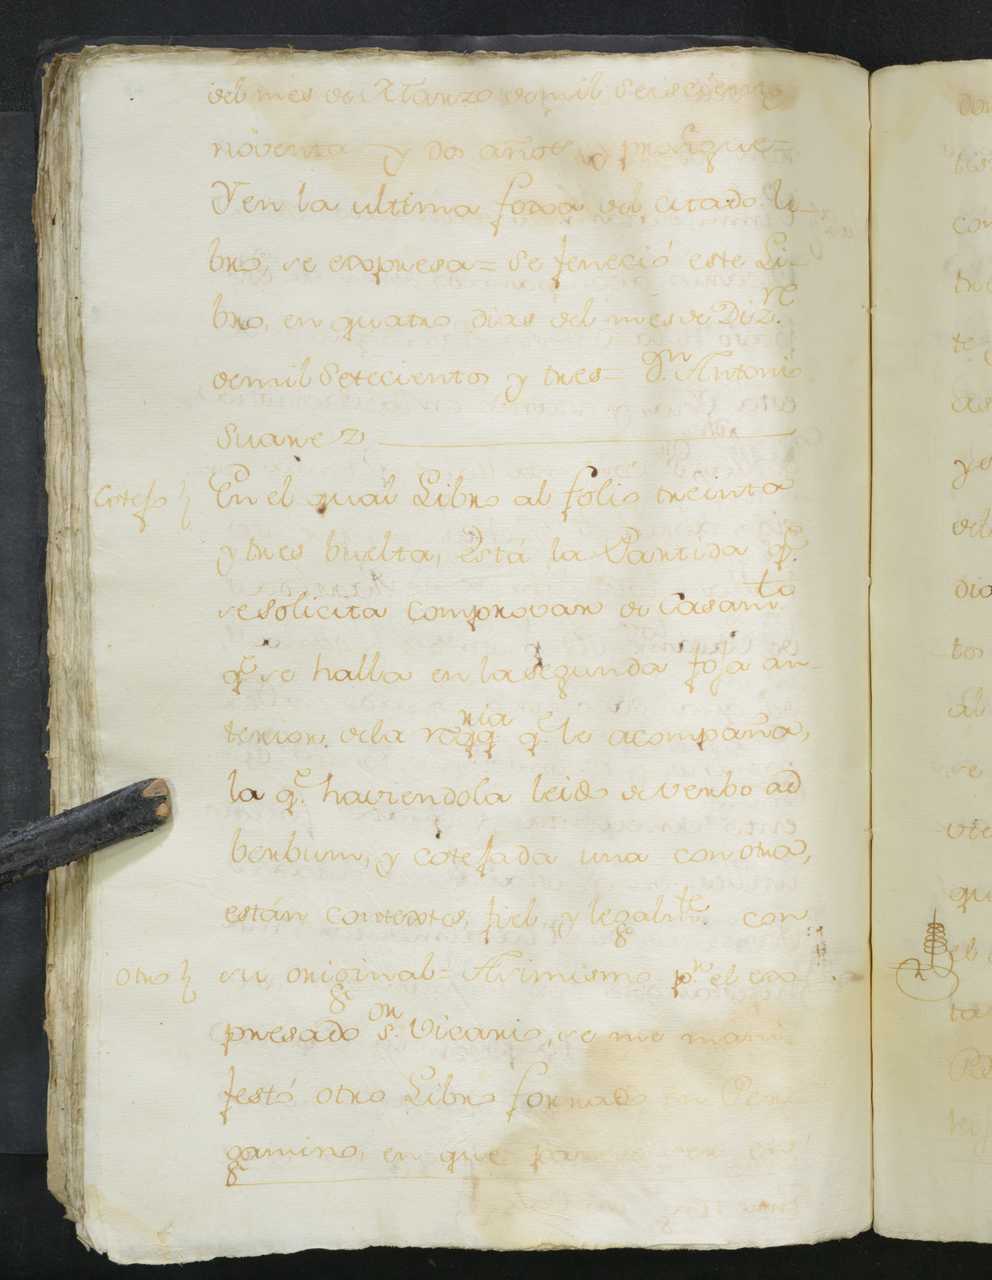 del mes de Marzo de mil Seiscientos
noventa y dos años, y prosigue=
Y en la ultima foxa del citado li-
bro, se expresa= Se feneció este Li-
bro, en quatro dias del mes de Diz.re
de mil Setecientos y tres= Dn. Antonio
Suarez
Cotejo En el qual Libro al folio treinta
y tres buelta, Está la Partida q.e
se solicita comprovar de Casam.to
q.e se halla en la segunda foja an-
terior, de la q.e le acompaña,
la q.e haviendola leido de verbo ad
berbum, y cotejada una con otra,
están contextes, fiel, y legalm.te con
Otro su original= Asimismo p.r el ex-
presado s.or Vicario, se me mani-
festó otro Libro forrado en Per-
gamino, en que parece ser en